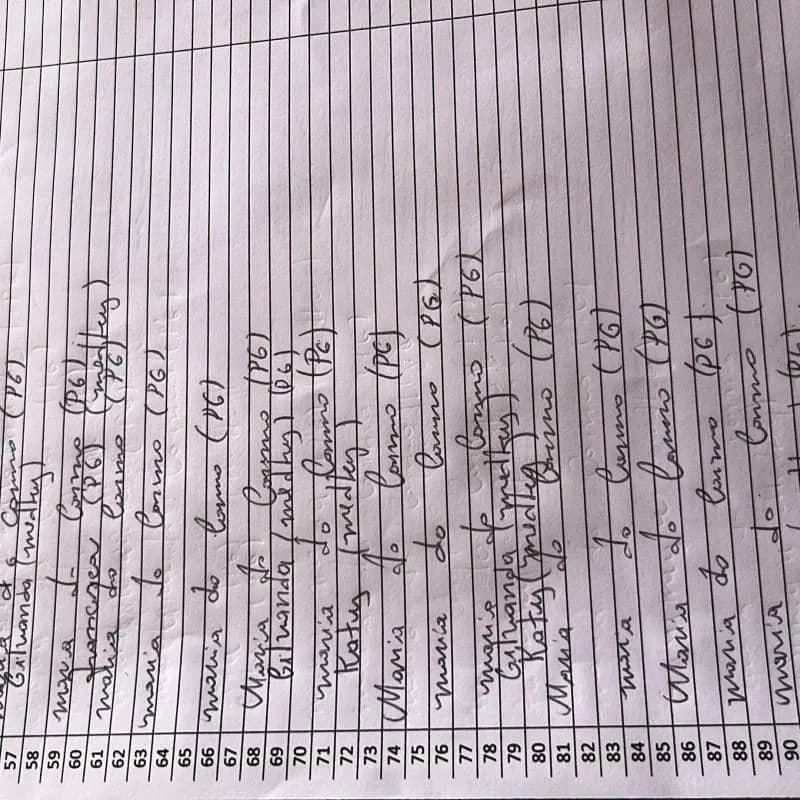 57 Cosmo (PG)
58 Gilvanda (medley)
59
60 maria do Cosmo (PG)
61 francisca (PG) (medley)
62 maria do Cosmo (PG)
63
64 maria do Cosmo (PG)
65
66 maria do Cosmo (PG)
67
68 Maria do Cosmo (PG)
69 Gilvanda (medley) (PG)
70
71 maria do Cosmo (PG)
72 Katy (medley)
73
74 Maria do Cosmo (PG)
75
76 maria do Cosmo (PG)
77
78 maria do Cosmo (PG)
79 Gilvanda (medley)
80 Katy (medley)
81 Maria do Cosmo (PG)
82
83
84 maria do Cosmo (PG)
85
86 Maria do Cosmo (PG)
87
88 maria do Cosmo (PG).
89
90 maria do Cosmo (PG)